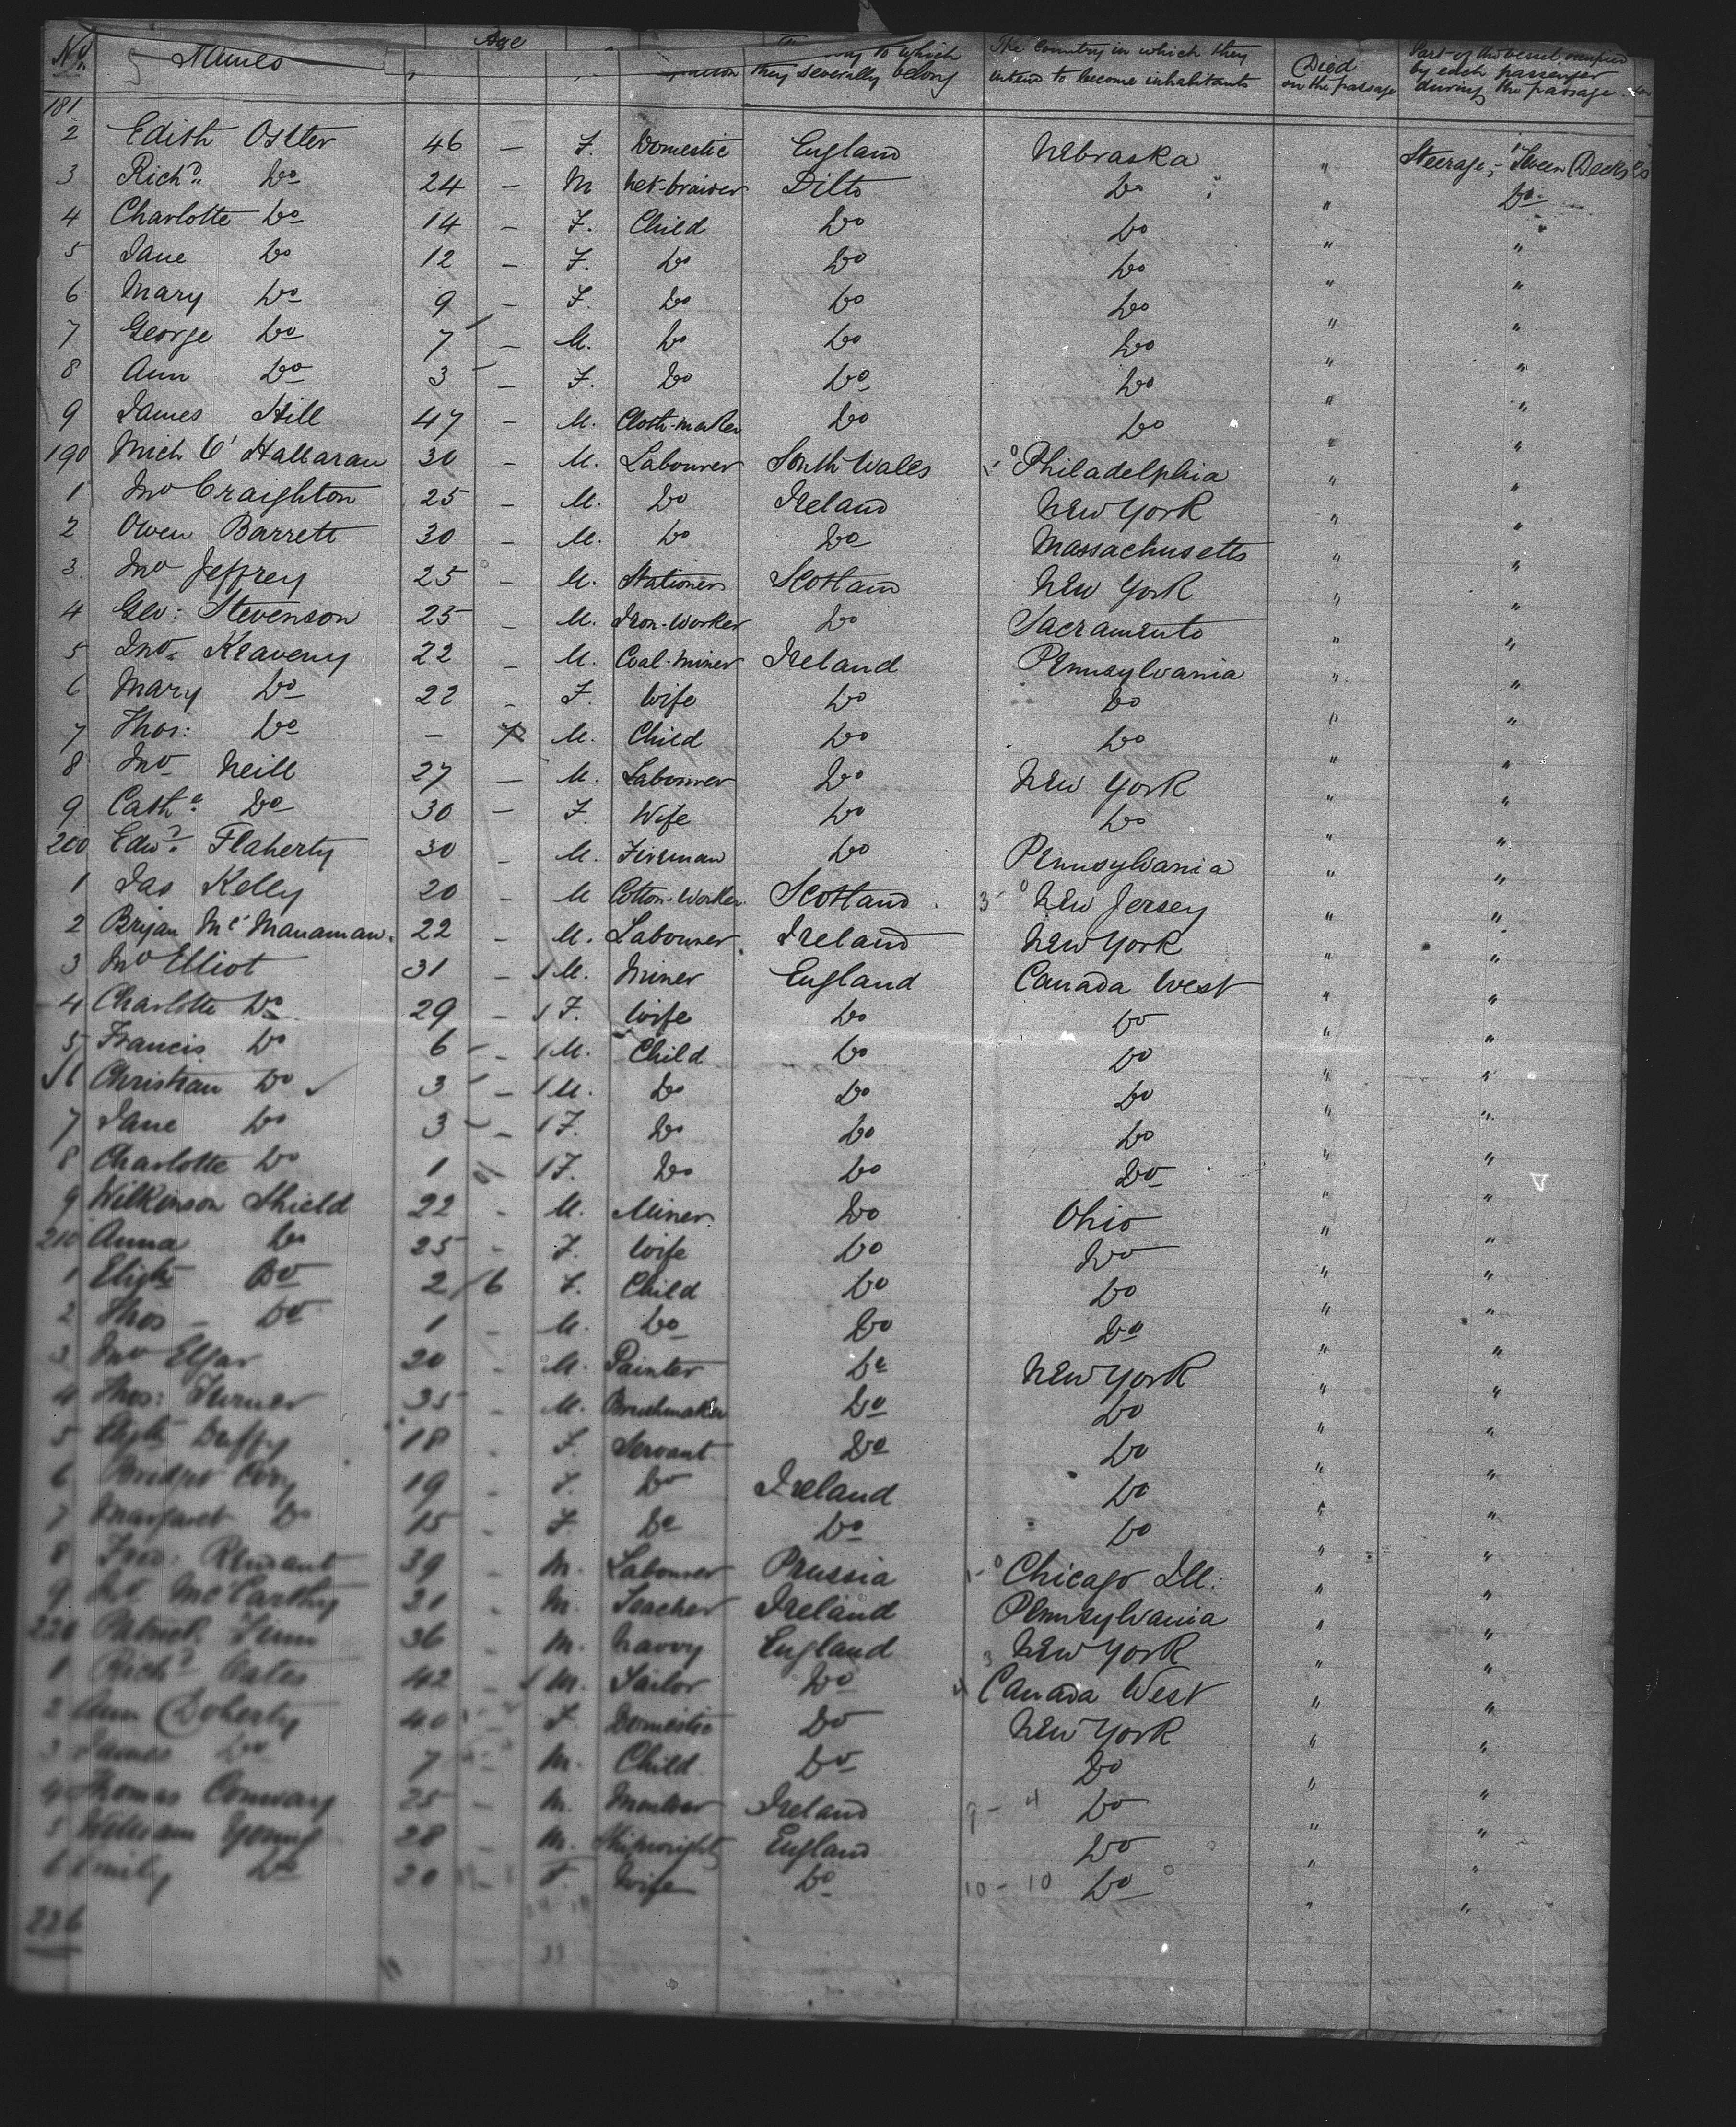 No. Names Age they severally belong The Country in which they intend to become inhabitants Died on the passage Part of the vessel occupied by each passenger during the passage
181
2 Edith Ostler 46 — F. Domestic England Nebraska " Steerage, - 'Tween Decks
3 Richd. Do 24 — M Ditto Do " Do
4 Charlotte Do 14 — F. Child Do Do " "
5 Jane Do 12 — F. Do Do Do " "
6 Mary Do 9 — F. Do Do Do " "
7 George Do 7 — M. Do Do Do " "
8 Ann Do 3 — F. Do Do Do " "
9 James Hill 47 — M. Cloth-maker Do Do " "
190 Mich O'Hallaran 30 — M. Labourer South Wales Philadelphia " "
1 Jno Craighton 25 — M. Do Ireland New York " "
2 Owen Barrett 30 — M. Do Do Massachusetts " "
3 Jno Jeffrey 25 — M. Stationer Scotland New York " "
4 Geo: Stevenson 25 — M. Iron-Worker Do Sacramento " "
5 Jno. Kraveny 22 — M. Coal-miner Ireland Pennsylvania " "
6 Mary Do 22 — F. Wife Do Do " "
7 Thos: Do — M. Child Do Do " "
8 Jno Neill 27 — M. Labourer Do New York " "
9 Cathe. Do 30 — F. Wife Do Do " "
200 Edwd. Flaherty 30 — M. Fireman Do Pennsylvania " "
1 Jas Kelly 20 — M Cotton-Worker Scotland 3 New Jersey " "
2 Bryan McManaman 22 — M. Labourer Ireland New York " "
3 Jno Elliot 31 — M. Miner England Canada West " "
4 Charlotte Do 29 — F. Wife Do Do " "
5 Francis Do 6 — M. Child Do Do " "
6 Christian Do 3 — M. Do Do Do " "
7 Jane Do 3 — F. Do Do Do " "
8 Charlotte Do 1 — F. Do Do Do " "
9 Wilkinson Shield 22 - M. Miner Do Ohio " "
210 Anna Do 25 - F. Wife Do Do " "
1 Do 2/6 F. Child Do Do " "
2 Thos - Do 1 - M. Do Do Do " "
3 Jno Elgar 20 - M. Painter Do New York " "
4 Thos: Turner 35 - M. Brushmaker Do Do " "
5 Duffy 18 - F. Servant Do Do " "
6 19 - F. Do Ireland Do " "
7 Margaret Do 15 - F. Do Do Do " "
8 39 - M. Labourer Prussia Chicago Ill: " "
9 McCarthy 21 - M. Teacher Ireland Pennsylvania " "
220 36 - M. Navvy England 3 New York " "
1 Richd. 42 - M. Do Canada West " "
2 Ann Doherty 40 F. Domestic Do New York " "
3 James Do 7 M. Child Do Do " "
4 Thomas Conway 25 — M. Ireland 9 - 4 Do " "
5 William Young 28 - M. Shipwright England Do " "
6 Emily Do 20 - F. Wife Do 10 - 10 Do " "
226